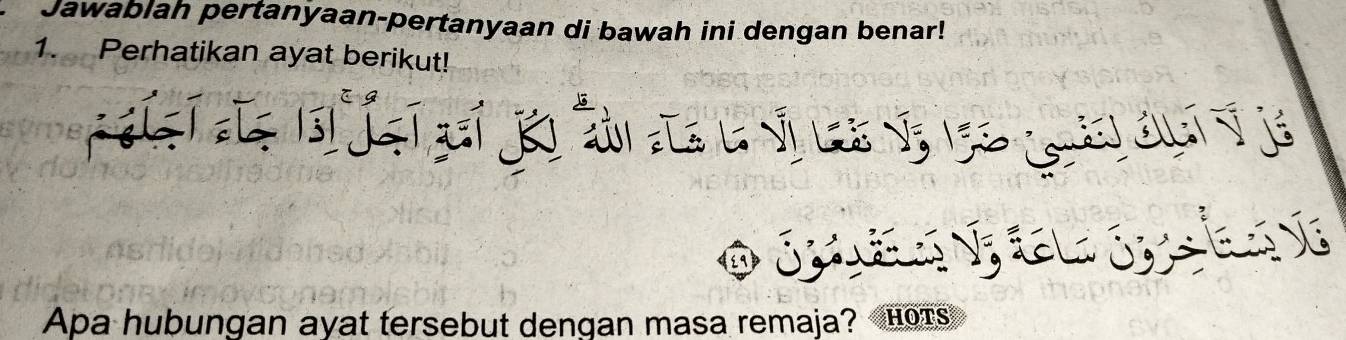 Jawablah pertanyaan-pertanyaan di bawah ini dengan benar!
1. Perhatikan ayat berikut!
قُلْ لَّآ اَمْلِكُ لِنَفْسِيْ ضَرًّا وَّلَا نَفْعًا اِلَّا مَا شَاۤءَ اللّٰهُ ۗ لِكُلِّ اُمَّةٍ اَجَلٌ ۚ اِذَا جَاۤءَ اَجَلُهُمْ
فَلَا يَسْتَأْخِرُوْنَ سَاعَةً وَّلَا يَسْتَقْدِمُوْنَ ٤٩
Apa hubungan ayat tersebut dengan masa remaja? HOTS